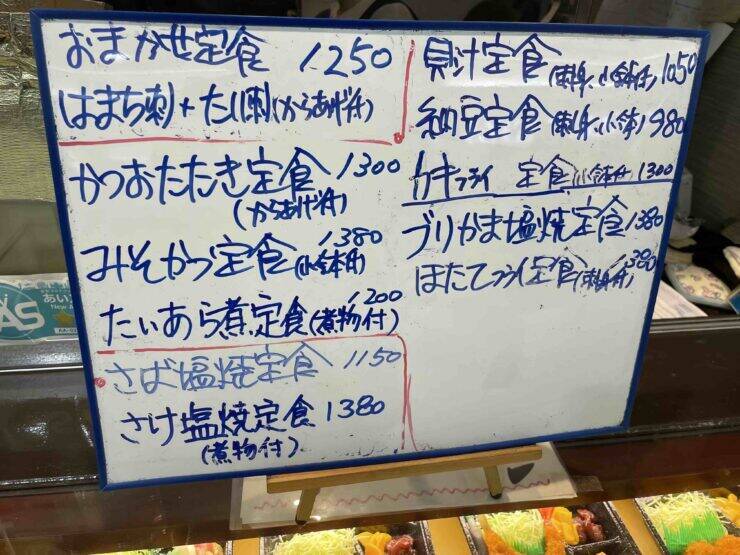 おまかせ定食 1250
はまち刺+たい刺(からあげ付)
かつおたたき定食 1300
(からあげ付)
みそかつ定食(小鉢付) 1380
たいあら煮定食(煮物付) 1200
さば塩焼定食 1150
さけ塩焼定食 1380
(煮物付)
貝汁定食(刺身、小鉢付) 1050
納豆定食(刺身、小鉢) 980
カキフライ 定食(小鉢付) 1300
ブリかま塩焼定食 1380
ほたてフライ定食(刺身付) 1380
AS
あい